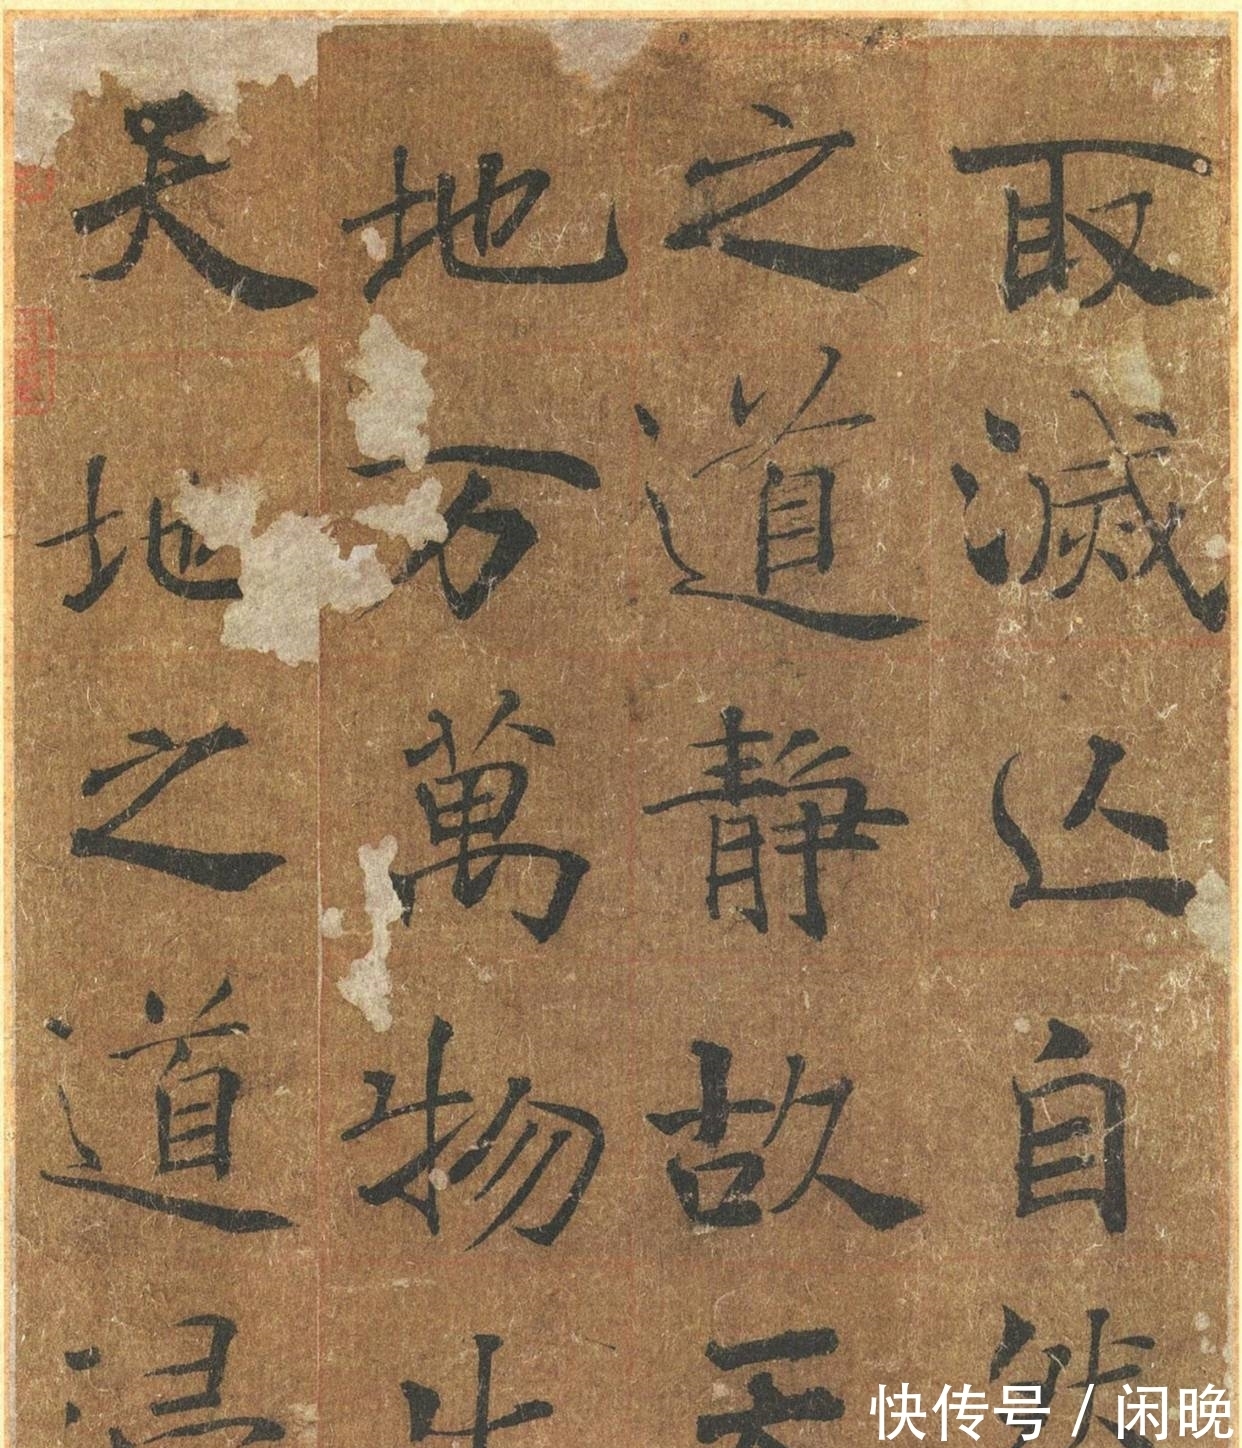 取滅亾自然
之道靜故天
地万萬物生
天地之道浸
快传号 / 闲晚